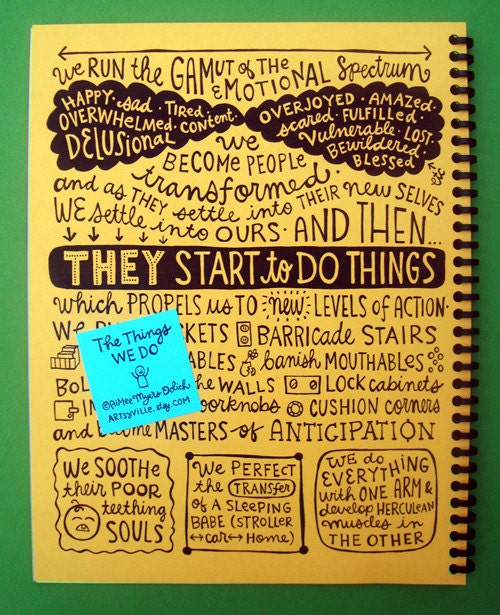 we RUN the GAMUT of THE EMOTIONAL Spectrum
HAPPY · sad · TIRED ·
OVERWHELMED · CONTENT ·
DELUSIONAL
OVERJOYED · AMAZED ·
scared · FULFILLED ·
Vulnerable · LOST ·
BEWILDERED ·
BLESSED
we
BECOME PEOPLE
transformed.
and as THEY settle into THEIR NEW SELVES
WE settle into OURS · AND THEN...
THEY START to DO THINGS
which PROPELS us TO new LEVELS of ACTION.
We KETS BARRICADE STAIRS
ABLES banish MOUTHABLES
he WALLS LOCK cabinets
oorknobs CUSHION corners
and MASTERS of ANTICIPATION
The Things
WE DO
©AiMee Myers Dolich
ARTSyVille.etsy.COM
We SOOTHe
their POOR
teething
SOULS
We PERFECT
the TRANSFER
OF A SLEEPING
BABE (STROLLER
↔CAR↔HOME)
WE DO
EVERYTHING
with ONE ARM &
develop HERCULEAN
muscles in
THE OTHER